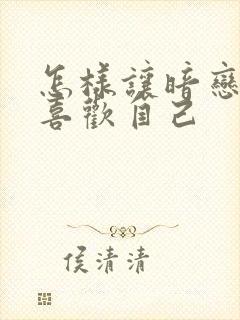 怎樣讓暗戀
喜歡自己
侯清清